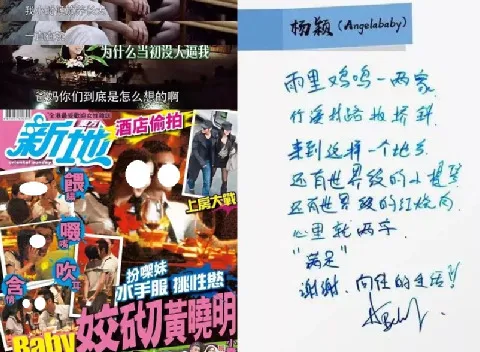 为什么当初没人逼我
爸妈你们到底是怎么想的啊
新地
oriental sunday
酒店偷拍
上房大戰
餵
嘴
吹
耳
含
情
扮喫妹
水手服 挑性慾
Baby
姣砌黃曉明
杨颖 (Angelababy)
雨里鸡鸣一两家
竹溪村路板桥斜
来到这样一个地方
还有世界级的小提琴
还有世界级的红烧肉
心里就两字
"满足"
谢谢,向往的生活!